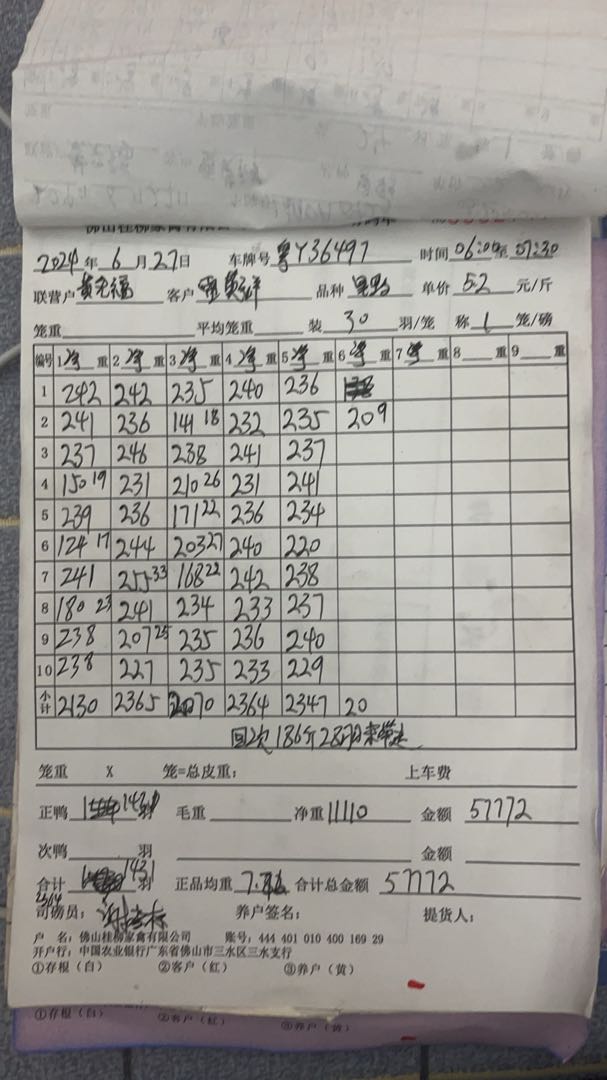 2024年6月27日 车牌号粤Y36497 时间06:00至07:30
联营户黄元福 客户 品种 单价5.2元/斤
笼重 平均笼重 装30羽/笼 称1笼/磅
编号 1净重 2净重 3净重 4净重 5净重 6净重 7净重 8重 9重
1 242 242 235 240 236
2 241 236 141 18 232 235 209
3 237 246 238 241 237
4 150 19 231 210 26 231 241
5 239 236 171 22 236 234
6 124 17 244 203 27 240 220
7 241 255 33 168 22 242 238
8 180 23 241 234 233 237
9 238 207 25 235 236 240
10 238 227 235 233 229
小计 2130 2365 2070 2364 2347 20
186斤28
笼重 X 笼=总皮重: 上车费
正鸭 羽 毛重 净重11110 金额 57772
次鸭 羽 金额
合计 1431羽 正品均重 合计总金额 57772
2364
司磅员: 养户签名: 提货人:
户 名: 佛山桂柳家禽有限公司 账号: 444 401 010 400 169 29
开户行: 中国农业银行广东省佛山市三水区三水支行
①存根（白） ②客户（红） ③养户（黄）
①存根（白） ②客户（红） ③养户（黄）